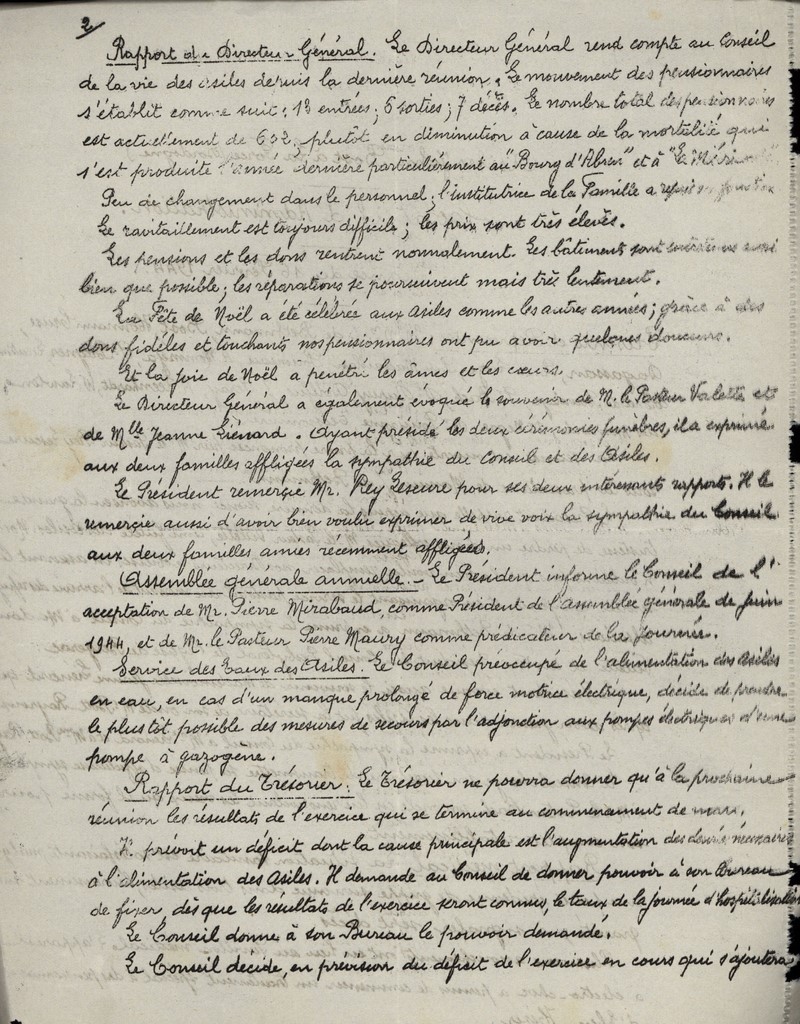 2
Rapport du Directeur Général. Le Directeur Général rend compte au Conseil
de la vie des asiles depuis la dernière réunion. Le mouvement des pensionnaires
s'établit comme suit : 13 entrées ; 6 sorties ; 7 décès. Le nombre total des pensionnaires
est actuellement de 602, plutôt en diminution à cause de la mortalité qui
s'est produite l'année dernière particulièrement au "Bourg d'Abren" et à "La
Peu de changement dans le personnel ; l'institutrice de la Famille a repris
Le ravitaillement est toujours difficile ; les prix sont très élevés.
Les pensions et les dons rentrent normalement. Les bâtiments sont aussi
bien que possible ; les réparations se poursuivent mais très lentement.
La Fête de Noël a été célébrée aux Asiles comme les autres années ; grâce à des
dons fidèles et touchants nos pensionnaires ont pu avoir quelques douceurs.
Et la joie de Noël a pénétré les âmes et les cœurs.
Le Directeur Général a également évoqué le souvenir de M. le Pasteur Valette et
de Mlle Jeanne Liénard. Ayant présidé les deux cérémonies funèbres, il a exprimé
aux deux familles affligées la sympathie du Conseil et des Asiles.
Le Président remerçie Mr. Rey Lescure pour ses deux intéressants rapports. Il le
remerçie aussi d'avoir bien voulu exprimer de vive voix la sympathie du Conseil
aux deux familles amies récemment affligées.
Assemblée générale annuelle. - Le Président informe le Conseil de l'
acceptation de Mr. Pierre Mirabaud, comme Président de l'Assemblée générale de Juin
1944, et de Mr. le Pasteur Pierre Maury comme prédicateur de la Journée.
Service des Eaux des Asiles. Le Conseil préoccupé de l'alimentation des Asiles
en eau, en cas d'un manque prolongé de force motrice électrique, décide de prendre
le plus tôt possible des mesures de secours par l'adjonction aux pompes électriques d'une
pompe à gazogène.
Rapport du Trésorier. Le Trésorier ne pourra donner qu'à la prochaine
réunion les résultats de l'exercice qui se termine au commencement de mars.
Il prévoit un déficit dont la cause principale est l'augmentation des denrées nécessaires
à l'alimentation des Asiles. Il demande au Conseil de donner pouvoir à son Bureau
de fixer, dès que les résultats de l'exercice seront connus, le taux de la journée d'hospitalisation
Le Conseil donne à son Bureau le pouvoir demandé.
Le Conseil décide, en prévision du déficit de l'exercice en cours qui s'ajoutera